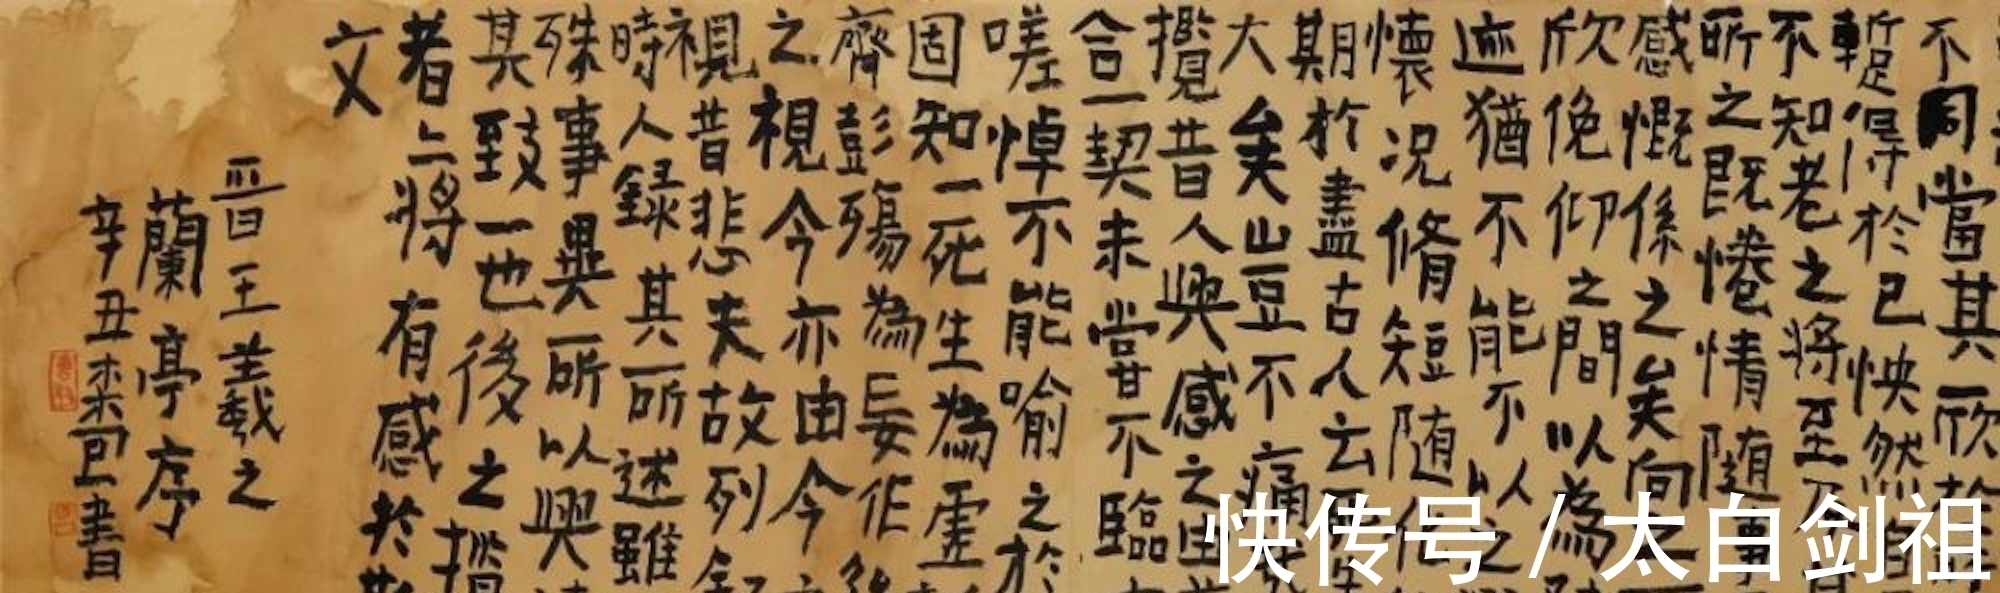 不同當其欣於
暫得於己怏然自
不知老之將至
所之既惓情随事
感慨係之矣向之
欣俛仰之間以為
迹猶不能不以之
懷况脩短随化
期於盡古人云死生
大矣豈不痛
攬昔人興感之由
合一契未嘗不臨
嗟悼不能喻之於
固知一死生為虚
齊彭殤為妄作後
之視今亦由今之
視昔悲夫故列叙
時人録其所述雖
殊事異所以興
其致一也後之攬
者亦將有感於斯
文
晋王羲之
蘭亭序
辛丑栾可書
快传号 / 太白剑祖